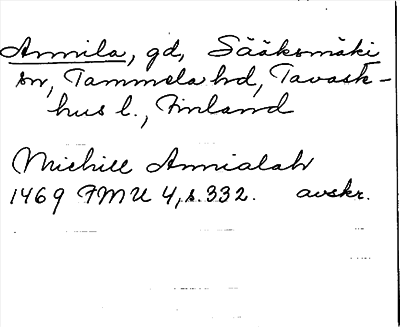 Annila, gd, Sääksmäki
sn, Tammela hd, Tavast-
hus l., Finland
Michill Annialah
1469 FMU 4, s. 332. avskr.